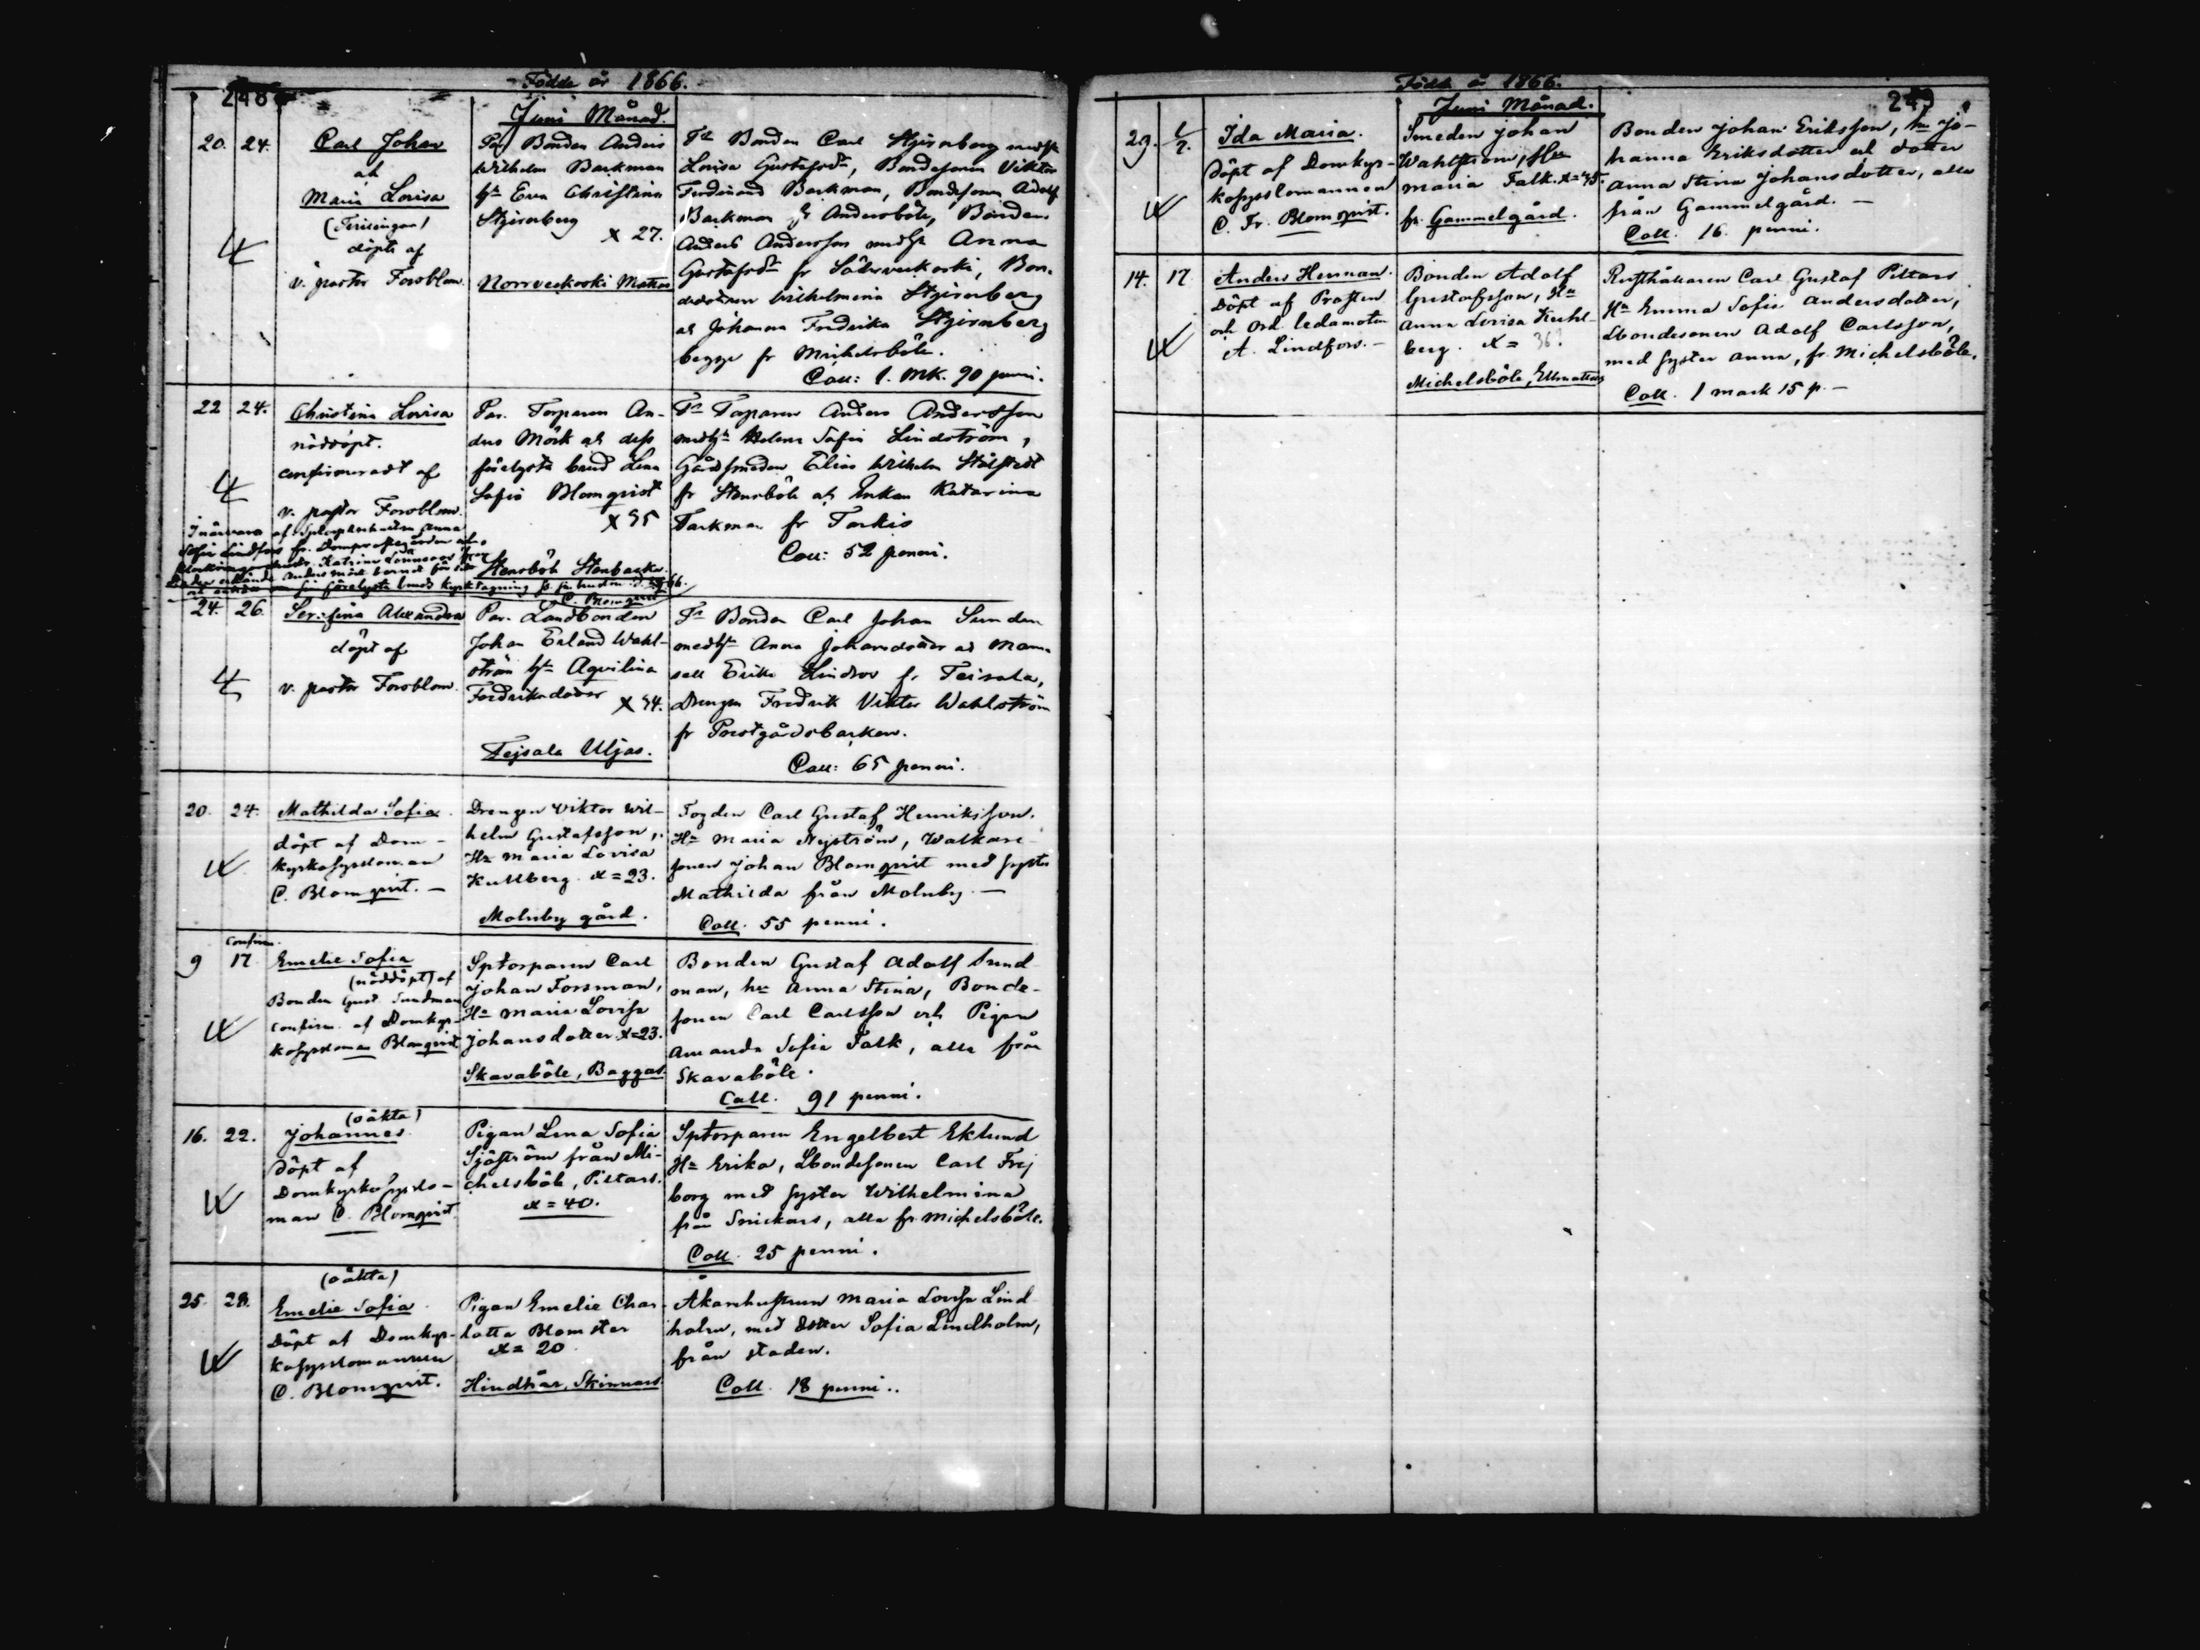 248
Födde år 1866.
Juni Månad.
20. 24. Carl Johan
ah
Maria Lovisa
(Tvillingar)
döpte af
v. pastor Forsblom.
Par Bonden Anders
Wilhelm Barkman
hu Eva Christina
Stjernberg
x 27.
Norrveckoski Mattas
Fr Bonden Carl Stjernberg med hu
Lovisa Gustafsdr, Bondesonen Viktor
Ferdinand Barkman, Bondesonen Adolf
Barkman fr Andersböle, Bonden
Anders Andersson med hu Anna
Gustafsdr fr Söderveckoski, Bon-
dedottren Wilhelmina Stjernberg
ah Johanna Fredrika Stjernberg
begge fr Mickelsböle.
Coll: 1. Mk. 90 penni.
22 24. Christina Lovisa
nöddöpt.
confirmeradt af
v. pastor Forsblom.
Par. Torparen An-
ders Mörk ah dess
förelofvade brud Lena
Sofia Blomqvist
x 35
Stensböle Stenbacka
Fr Torparen Anders Andersson
med hu Helena Sofia Lindström,
Gårdssmeden Elias Wilhelm Stålstedt
fr Stensböle ah Enkan Katarina
Tarkman fr Tarkis
Coll: 52 penni.
I närvaro af
Anna
Sofia Lindfors fr.
C. Blomqvist
24. 26. Serafina Alexandra
döpt af
v. pastor Forsblom.
Par. Landbonden
Johan Erland Wahl-
ström hu Aqvilina
Fredriksdotter
x 34.
Tejsala Uljas.
Fr Bonden Carl Johan Sunden
med hu Anna Johansdotter ah Mam-
sell Erika Lindroos fr Teisala,
Drengen Fredrik Viktor Wahlström
fr Prostgårdsbacken.
Coll: 65 penni.
20. 24. Mathilda Sofia.
döpt af Dom-
kyrkosyssloman
C. Blomqvist. –
Drengen Viktor Wil-
helm Gustafsson,
Hu Maria Lovisa
Kullberg. x = 23.
Molnby gård.
Fogden Carl Gustaf Henriksson.
Hu Maria Nyström, Walkare-
sonen Johan Blomqvist med syster
Mathilda från Molnby. –
Coll. 55 penni.
confirm.
9 17. Emelie Sofia
(nöddöpt) af
Bonden Gust. Sundman
confirm. af Domkyr-
kosyssloman Blomqvist
Sptorparen Carl
Johan Forsman,
Hu Maria Lovisa
Johansdotter x=23.
Skavaböle, Baggas.
Bonden Gustaf Adolf Sund-
man, hu Anna Stina, Bonde-
sonen Carl Carlsson och Pigan
Amanda Sofia Falk, alla från
Skavaböle.
Coll. 91 penni.
(oäkta)
16. 22. Johannes.
Döpt af
Domkyrkosysslo-
man C. Blomqvist.
Pigan Lena Sofia
Sjöström från Mi-
chelsböle, Pittars.
x = 40.
Sptorparen Engelbert Eklund
Hu Erika, Lbondesonen Carl Frej
borg med syster Wilhelmina
från Snickars, alla fr. Michelsböle.
Coll. 25 penni.
(oäkta)
25. 28. Emelie Sofia.
Döpt af Domkyr-
kosysslomannen
C. Blomqvist.
Pigan Emelie Char-
lotta Blomster
x = 20
Hindhår, Skinnars
Åkarehustrun Maria Lovisa Lind-
holm, med dotter Sofia Lindholm,
från staden.
Coll. 18 penni..
249
Födde år 1866.
Juni Månad.
29. 1/7. Ida Maria.
Döpt af Domkyr-
kosysslomannen
C. Fr. Blomqvist.
Smeden Johan
Wahlström, Hu
Maria Falk. x=45.
fr. Gammelgård.
Bonden Johan Eriksson, hu Jo-
hanna Eriksdotter och dotter
Anna Stina Johansdotter, alla
från Gammelgård. –
Coll. 16 penni.
14. 17. Anders Herman.
Döpt af Prosten
och Ord. ledamoten
A. Lindfors. –
Bonden Adolf
Gustafsson, Hu
Anna Lovisa Kuhl-
berg. x = 36.
Michelsböle, Ettmattas
Rusthållaren Carl Gustaf Pittars
Hu Emma Sofia Andersdotter,
Lbondesonen Adolf Carlsson,
med syster Anna, fr. Michelsböle.
Coll. 1 mark 15 p. –